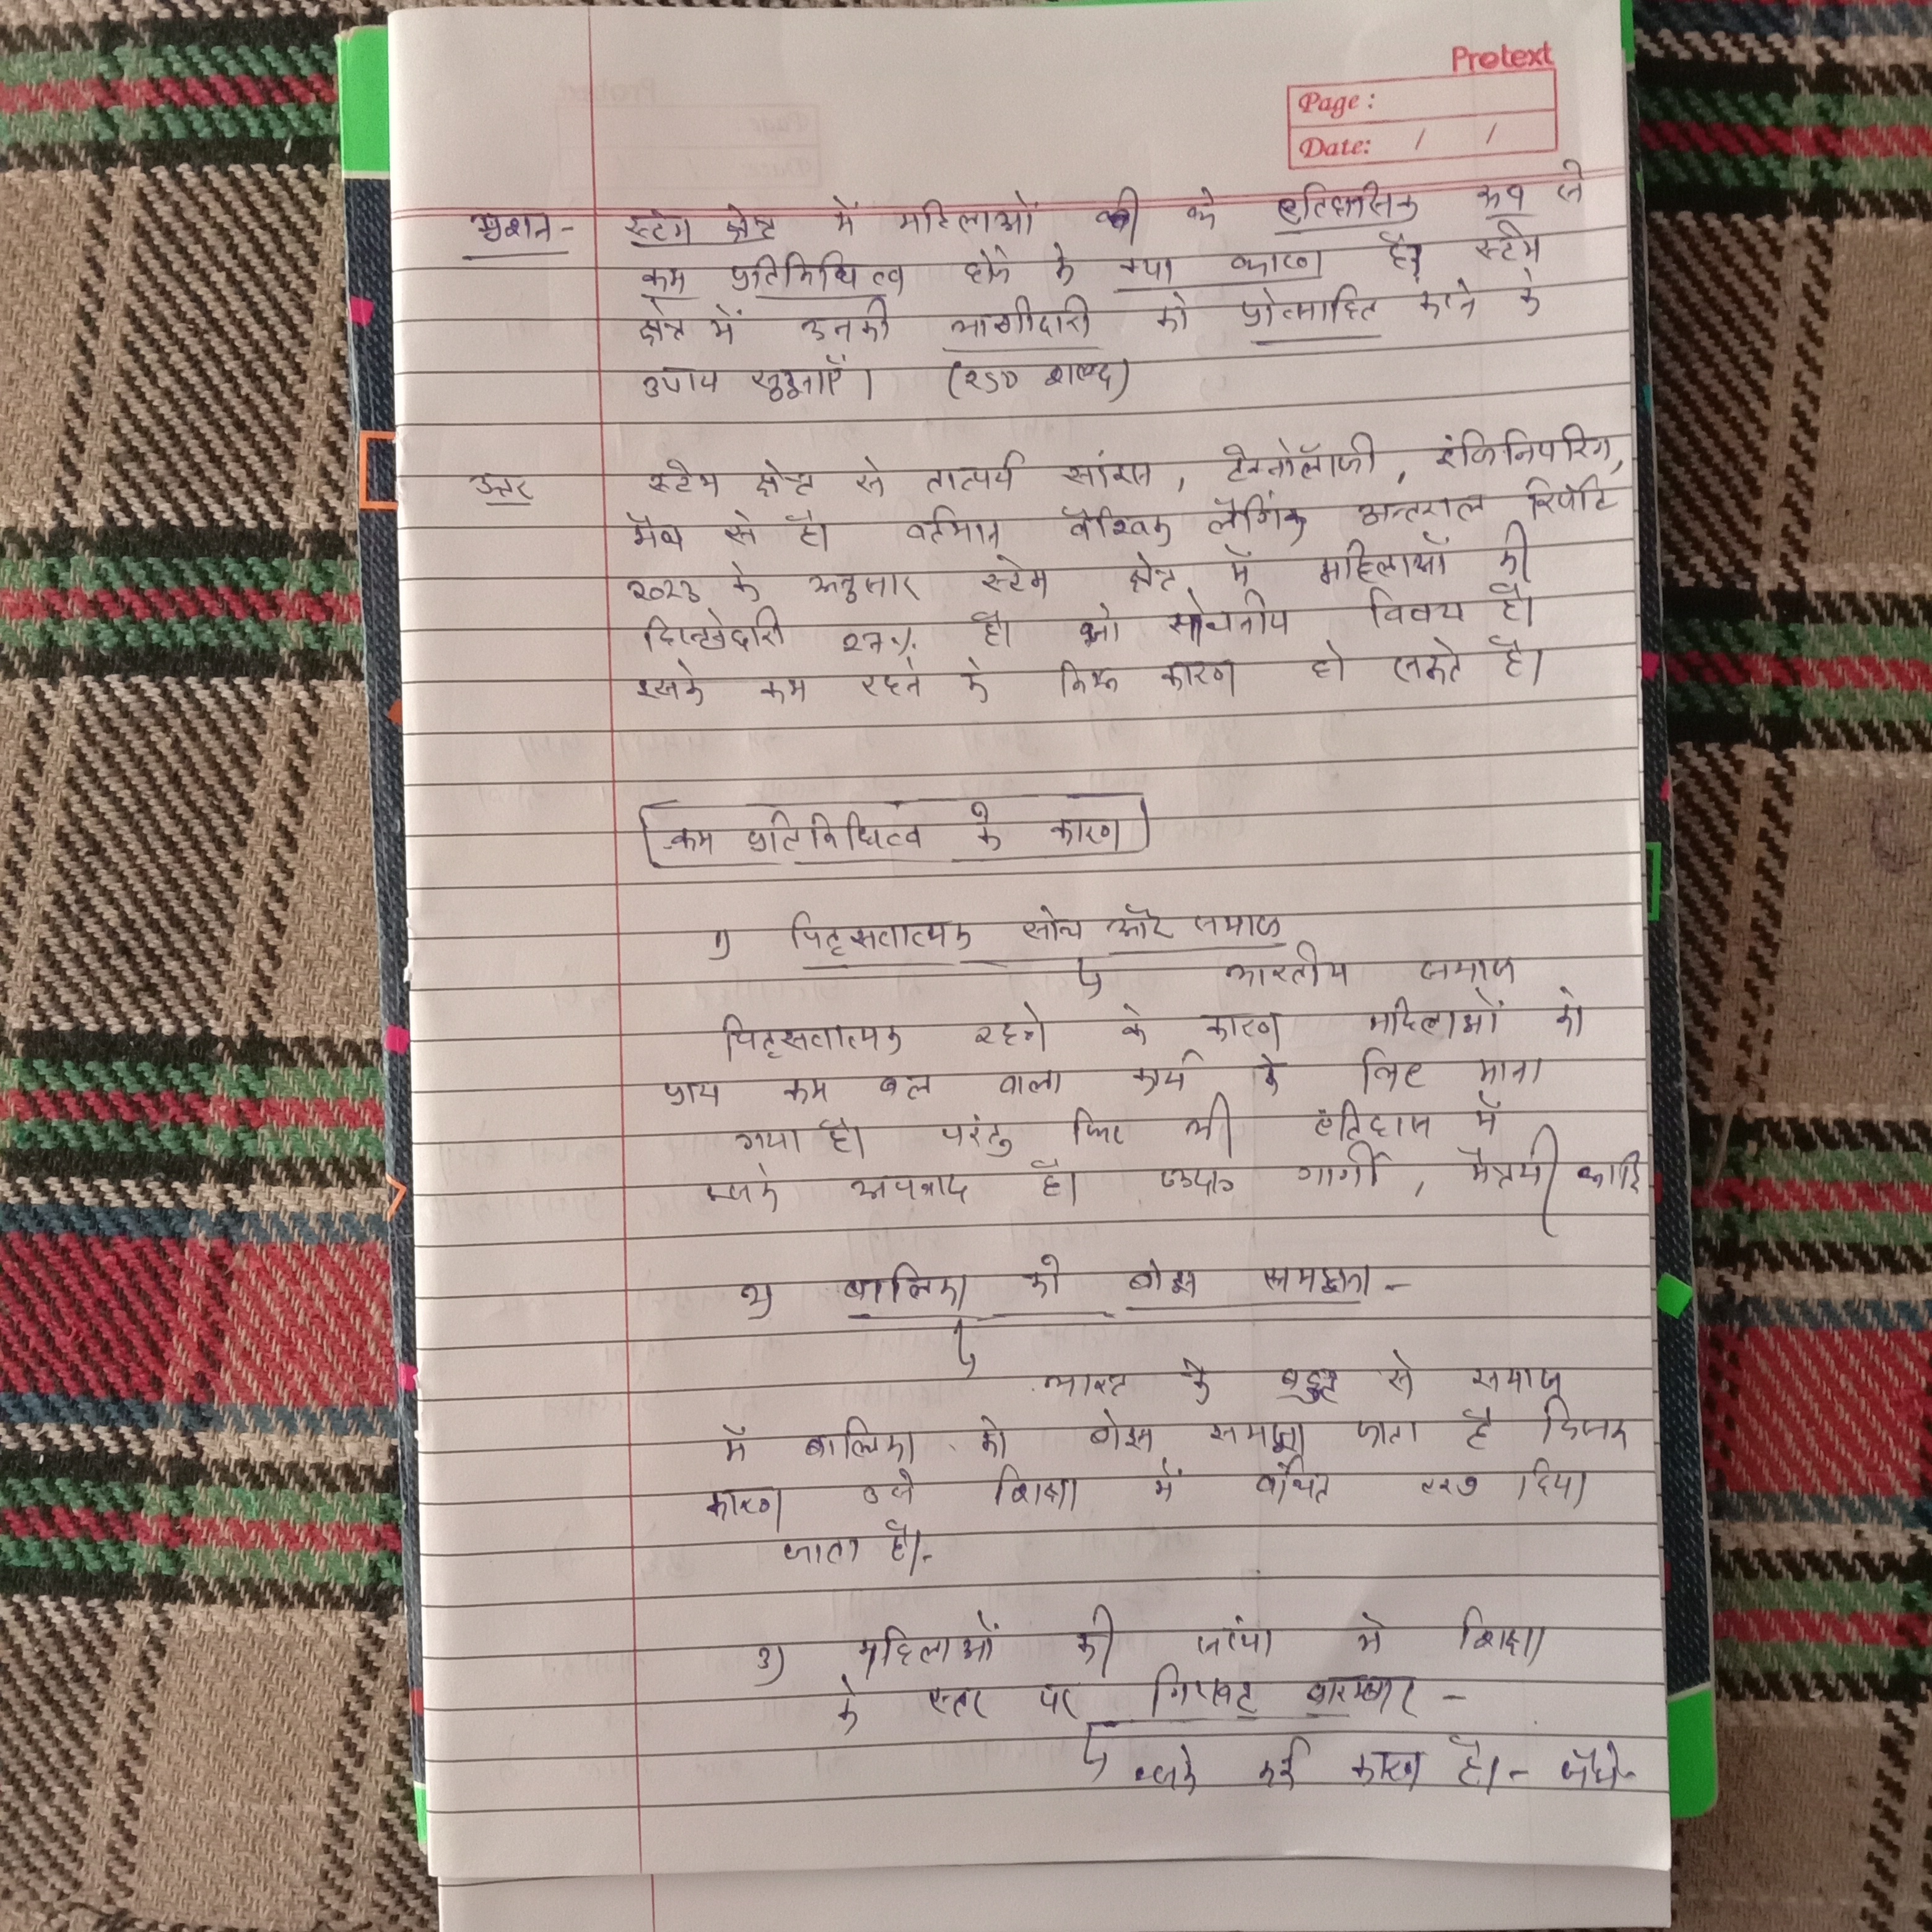 Protext
Page :
Date: / /
प्रश्न- स्टेम क्षेत्र में महिलाओं के ऐतिहासिक रूप से
कम प्रतिनिधित्व होने के क्या कारण है? स्टेम
क्षेत्र में उनकी भागीदारी को प्रोत्साहित करने के
उपाय सुझाएँ। (250 शब्द)
उत्तर स्टेम क्षेत्र से तात्पर्य सांइस, टेक्नोलॉजी, इंजिनियरिंग,
मैथ से है। वर्तमान वैश्विक लैगिंक अन्तराल रिपोर्ट
2023 के अनुसार स्टेम क्षेत्र में महिलाओं की
हिस्सेदारी 27% है। जो सोचनीय विषय है।
इसके कम रहने के निम्न कारण हो सकते है।
कम प्रतिनिधित्व के कारण
1) पितृसतात्मक सोच और समाज
भारतीय समाज
पितृसतात्मक रहने के कारण महिलाओं को
प्राय कम बल वाला कार्य के लिए माना
गया है। परंतु फिर भी इतिहास में
इसके अपवाद है। उदा० गार्गी, मैत्रयी आदि
2) बालिका को बोझ समझना -
भारत के बहुत से समाज
में बालिका को बोझ समझा जाता है जिसक
कारण उसे शिक्षा में वंचित रख दिया
जाता है।-
3) महिलाओं की संख्या मे शिक्षा
के स्तर पर गिरावट बारम्बार -
इसके कई कारण है।- जैसे-